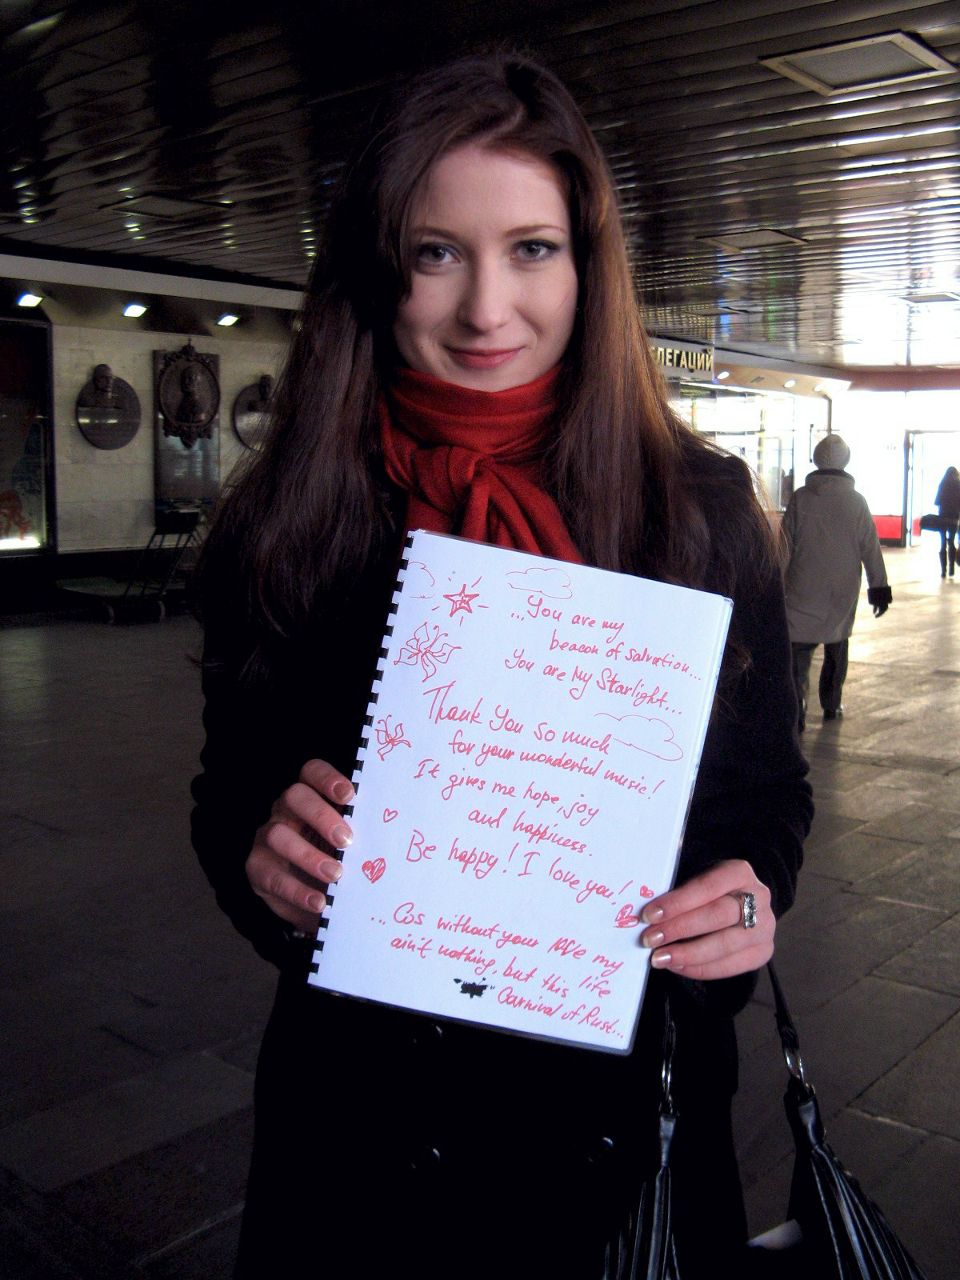 ЛЕГАЦИЙ
...You are my
beacon of salvation...
You are My Starlight...
Thank You so much
for your wonderful music!
It gives me hope, joy
and happiness.
Be happy! I love you!
...Cos without your love my
life
ain't nothing, but this
Carnival of Rust...